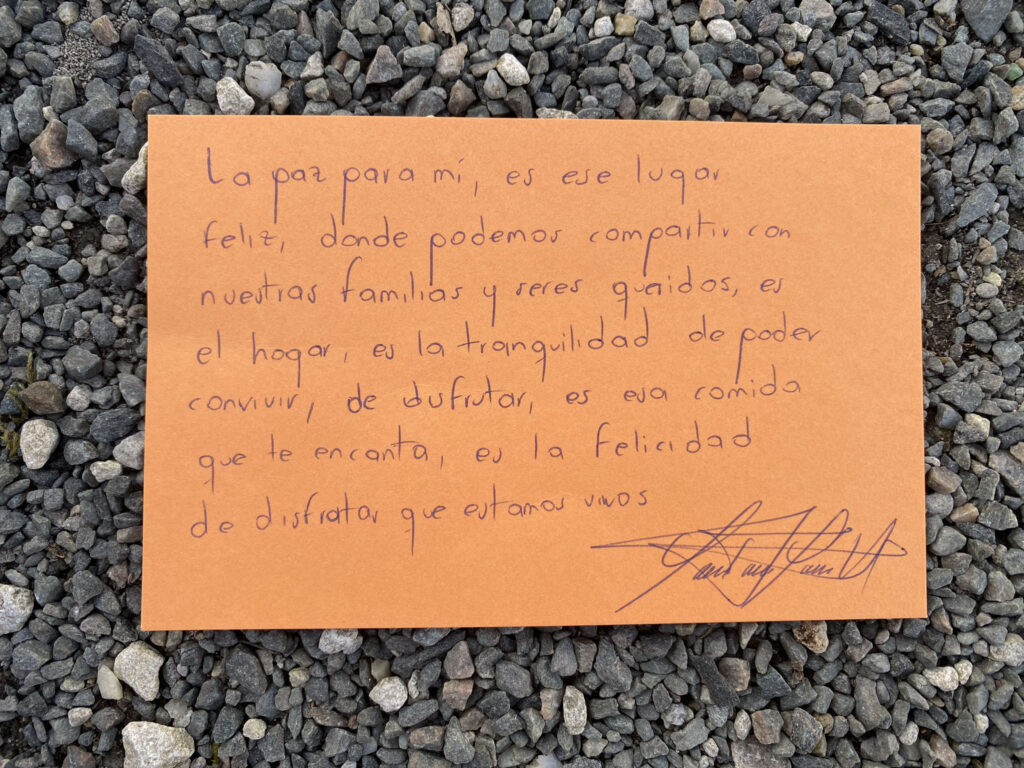 La paz para mí, es ese lugar
feliz, donde podemos compartir con
nuestras familias y seres queridos, es
el hogar, es la tranquilidad de poder
convivir, de disfrutar, es esa comida
que te encanta, es la felicidad
de disfratar que estamos vivos